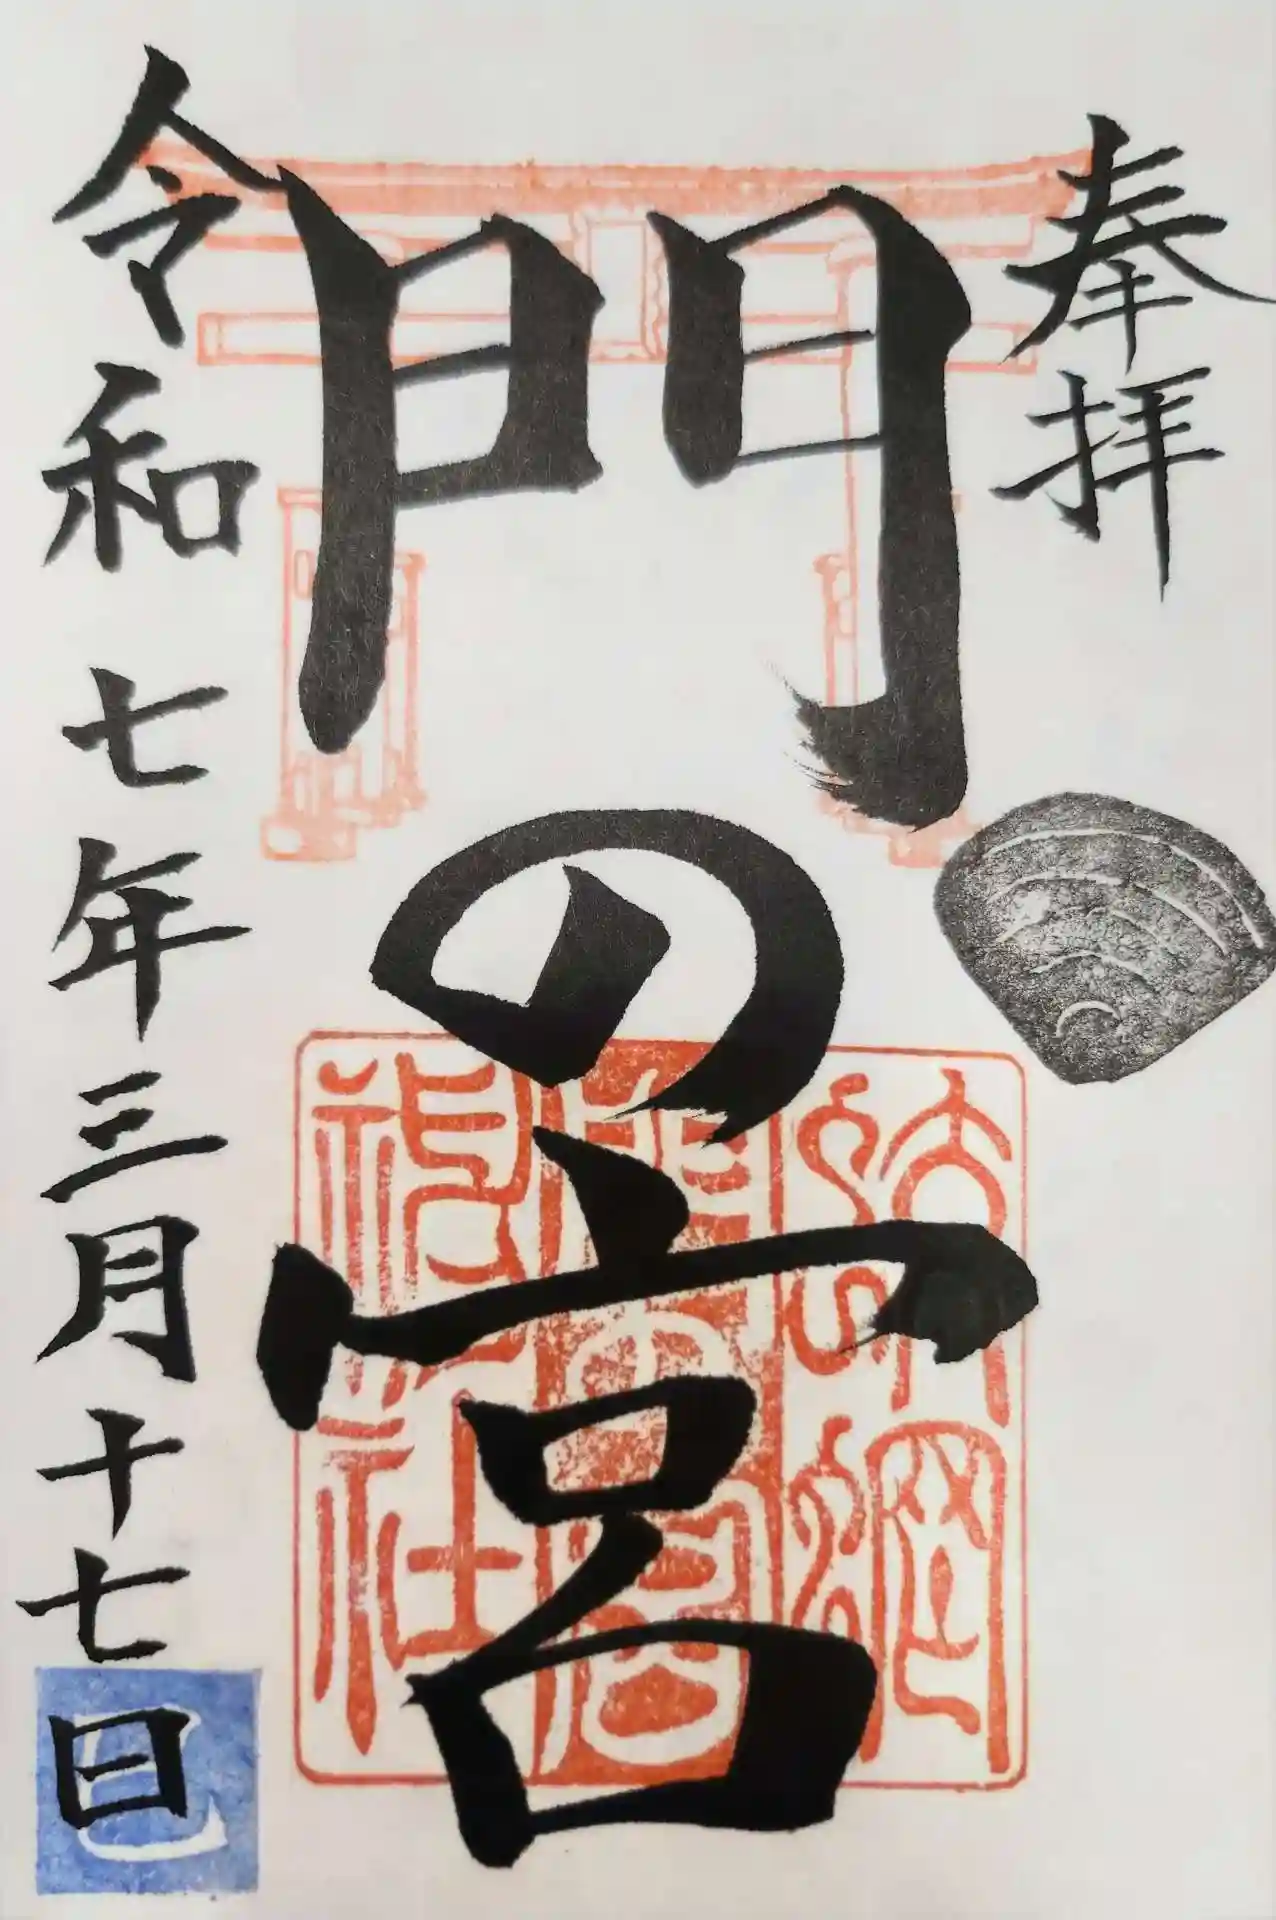 奉拝
門の宮
令和七年三月十七日
巳